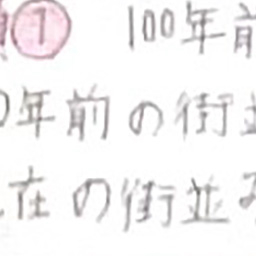 ① 100年前
0年前の街並
在の街並み